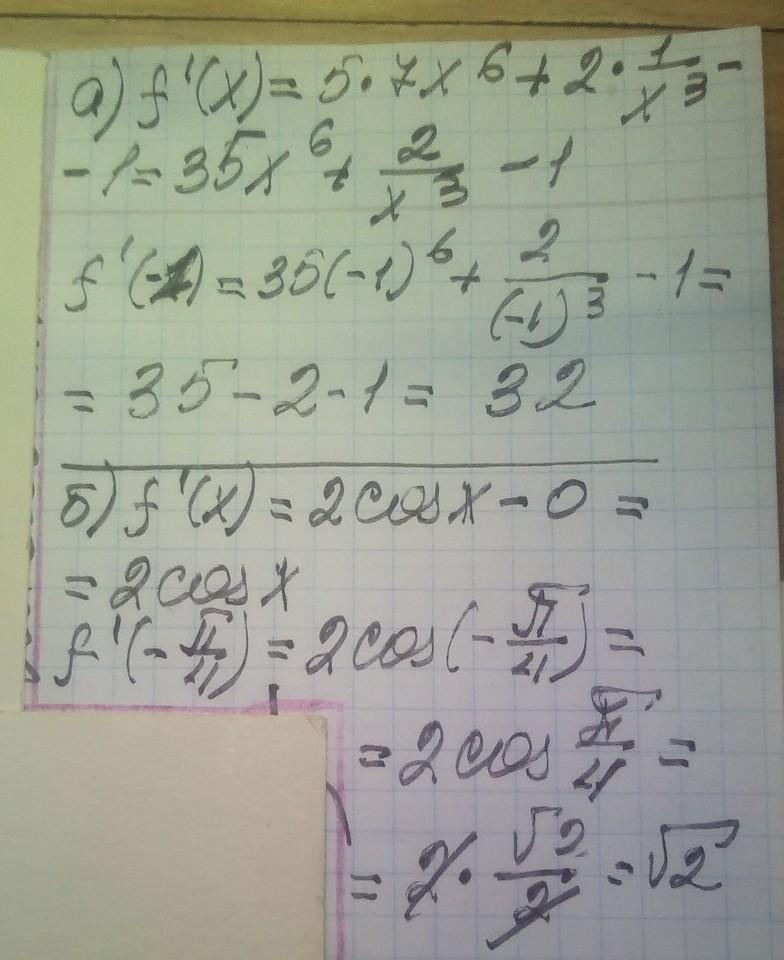 а) f'(x) = 5·7x⁶ + 2·1/x³ -
- 1 = 35x⁶ + 2/x³ - 1
f'(-1) = 35(-1)⁶ + 2/(-1)³ - 1 =
= 35 - 2 - 1 = 32
б) f'(x) = 2cosx - 0 =
= 2cosx
f'(-π/4) = 2cos(-π/4) =
= 2cos π/4 =
= 2·√2/2 = √2